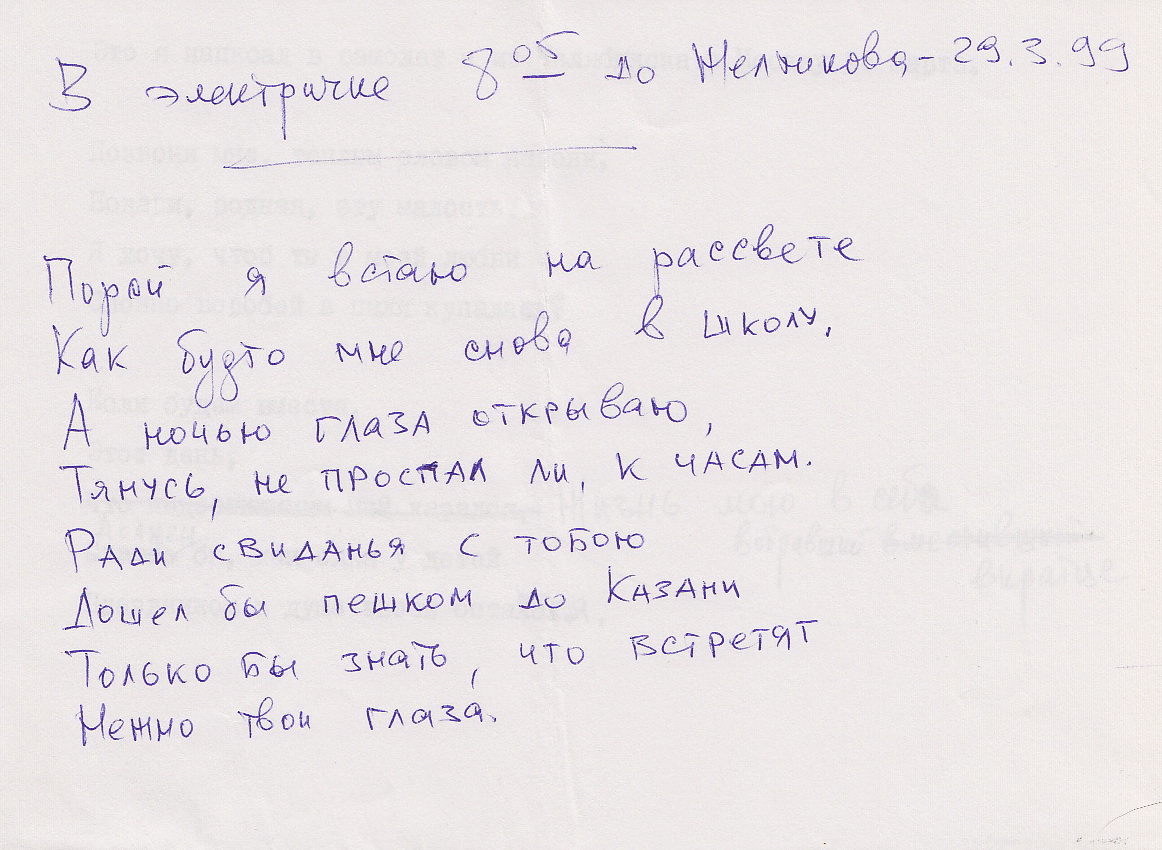 В электричке 8⁰⁵ до Желникова – 29.3.99
Порой я встаю на рассвете
Как будто мне снова в школу,
А ночью глаза открываю,
Тянусь, не проспал ли, к часам.
Ради свиданья с тобою
Дошел бы пешком до Казани
Только бы знать, что встретят
Нежно твои глаза.